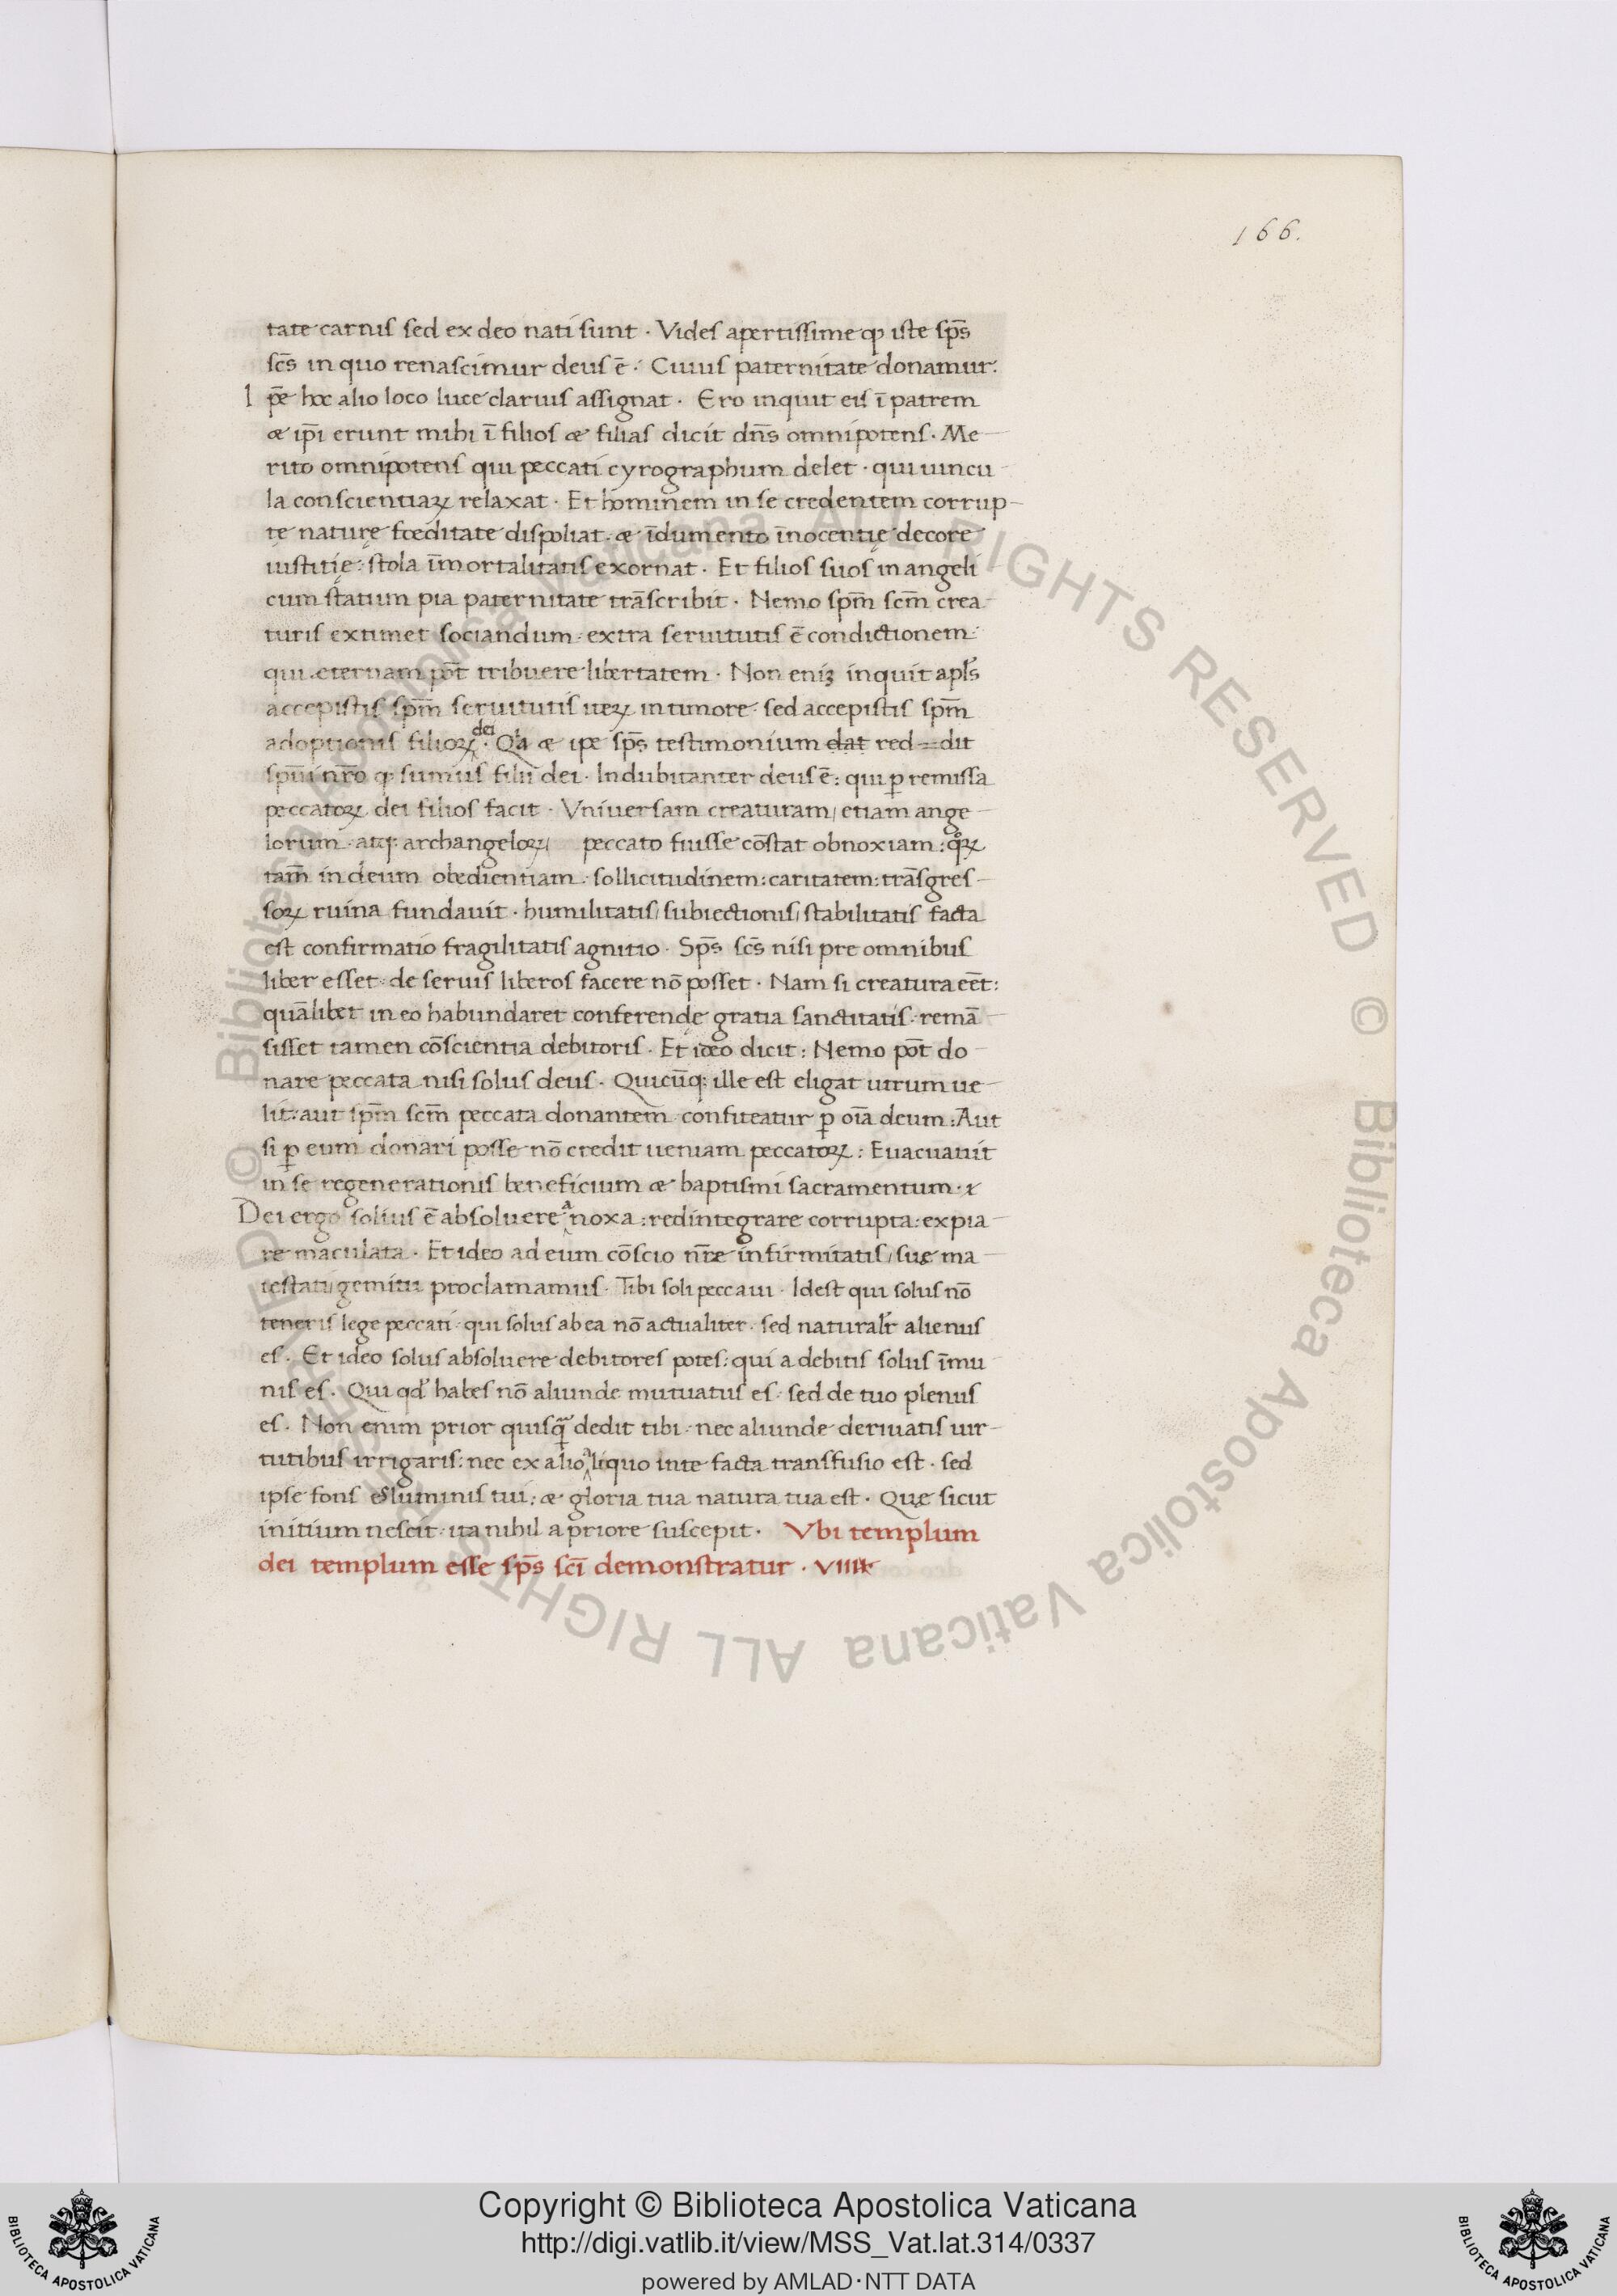 166.
tate carnis sed ex deo nati sunt · Vides apertissime ꝙ iste sp̄s
sc̄s in quo renascimur deus ē · Cuius paternitate donamur:
Ip̄e hoc alio loco luce clarius assignat · Ero inquit eis ī patrem
æ ip̄i erunt mihi ī filios æ filias dicit dn̄s omnipotens · Me-
rito omnipotens qui peccati cyrographum delet · qui uincu-
la conscientiaꝝ relaxat · Et hominem in se credentem corrup-
tę naturę fœditate dispoliat · æ īdumento īnocentię decore
iustitię: stola īmortalitatis exornat · Et filios suos in angeli
cum statum pia paternitate trāscribit · Nemo sp̄m sc̄m crea-
turis extimet sociandum · extra seruitutis ē condictionem:
qui eternam pōt tribuere libertatem · Non eniꝫ inquit apl̄s
accepistis sp̄m seruitutis iteꝝ in timore · sed accepistis sp̄m
adoptionis filioꝝ dei · Qa æ ipe sp̄s testimonium dat red=dit
spūi nr̄o ꝙ sumus filii dei · Indubitanter deus ē: qui ꝑ remissa
peccatoꝝ dei filios facit · Vniuersam creaturam/ etiam ange-
lorum · atq: archangeloꝝ/ peccato fuisse cōstat obnoxiam: quoꝝ
tam̄ in deum obedientiam · sollicitudinem: caritatem: trāsgres-
soꝝ ruina fundauit · humilitatis/ subiectionis/ stabilitatis facta
est confirmatio fragilitatis agnitio · Sp̄s sc̄s nisi pre omnibus
liber esset · de seruis liberos facere nō posset · Nam si creatura eēt:
quālibet in eo habundaret conferendę gratia sanctitatis · remā-
sisset tamen cōscientia debitoris · Et ideo dicit: Nemo pōt do-
nare peccata nisi solus deus · Quicūq: ille est eligat utrum ue-
lit: aut sp̄m sc̄m peccata donantem confiteatur ꝑ oīa deum: Aut
si ꝑ eum donari posse nō credit ueniam peccatoꝝ: Euacuauit
in se regenerationis beneficium æ baptismi sacramentum ·
Dei ergo solius ē absoluere a noxa: redintegrare corrupta: expia-
re maculata · Et ideo ad eum cōscio nr̄æ infirmitatis/ suę ma-
iestati/ gemitu proclamamus · Tibi soli peccaui · Idest qui solus nō
teneris lege peccati · qui solus ab ea nō actualiter · sed naturalr̄ alienus
es · Et ideo solus absoluere debitores potes: qui a debitis solus īmu
nis es · Qui qd habes nō aliunde mutuatus es · sed de tuo plenus
es · Non enim prior quisꝗ dedit tibi · nec aliunde deriuatis uir-
tutibus irrigaris: nec ex alio aliquo in te facta transfusio est · sed
ipse fons es luminis tui: æ gloria tua natura tua est · Quę sicut
initium nescit · ita nihil a priore suscepit · Vbi templum
dei templum esse sp̄s sc̄i demonstratur · VIIII
Copyright © Biblioteca Apostolica Vaticana
http://digi.vatlib.it/view/MSS_Vat.lat.314/0337
powered by AMLAD·NTT DATA